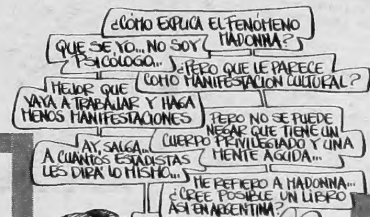 ¿CÓMO EXPLICA EL FENÓMENO
MADONNA?
QUE SE YO... NO SOY
PSICÓLOGO...
¿PERO QUE LE PARECE
COMO MANIFESTACION CULTURAL?
MEJOR QUE
VAYA A TRABAJAR Y HAGA
MENOS MANIFESTACIONES
PERO NO SE PUEDE
NEGAR QUE TIENE UN
CUERPO PRIVILEGIADO Y UNA
MENTE AGUDA...
AY, SALGA...
A CUÁNTOS ESTADISTAS
LES DIRA LO MISMO...
ME REFIERO A MADONNA...
¿CREE POSIBLE UN LIBRO
ASI EN ARGENTINA?